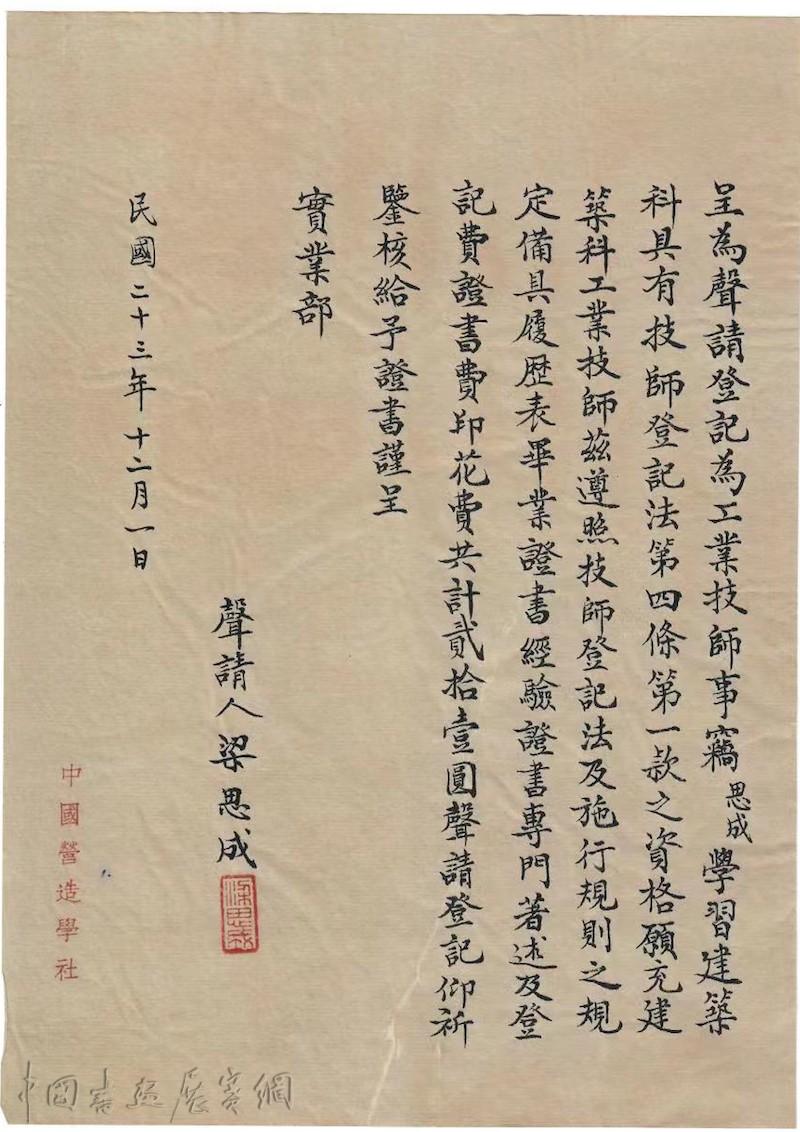 呈為聲請登記為工業技師事竊思成學習建築
科具有技師登記法第四條第一款之資格願充建
築科工業技師茲遵照技師登記法及施行規則之規
定備具履歷表畢業證書經驗證書專門著述及登
記費證書費印花費共計貳拾壹圓聲請登記仰祈
鑒核給予證書謹呈
實業部
聲請人梁思成
梁思成
民國二十三年十二月一日
中國營造學社
中国書法展賽網